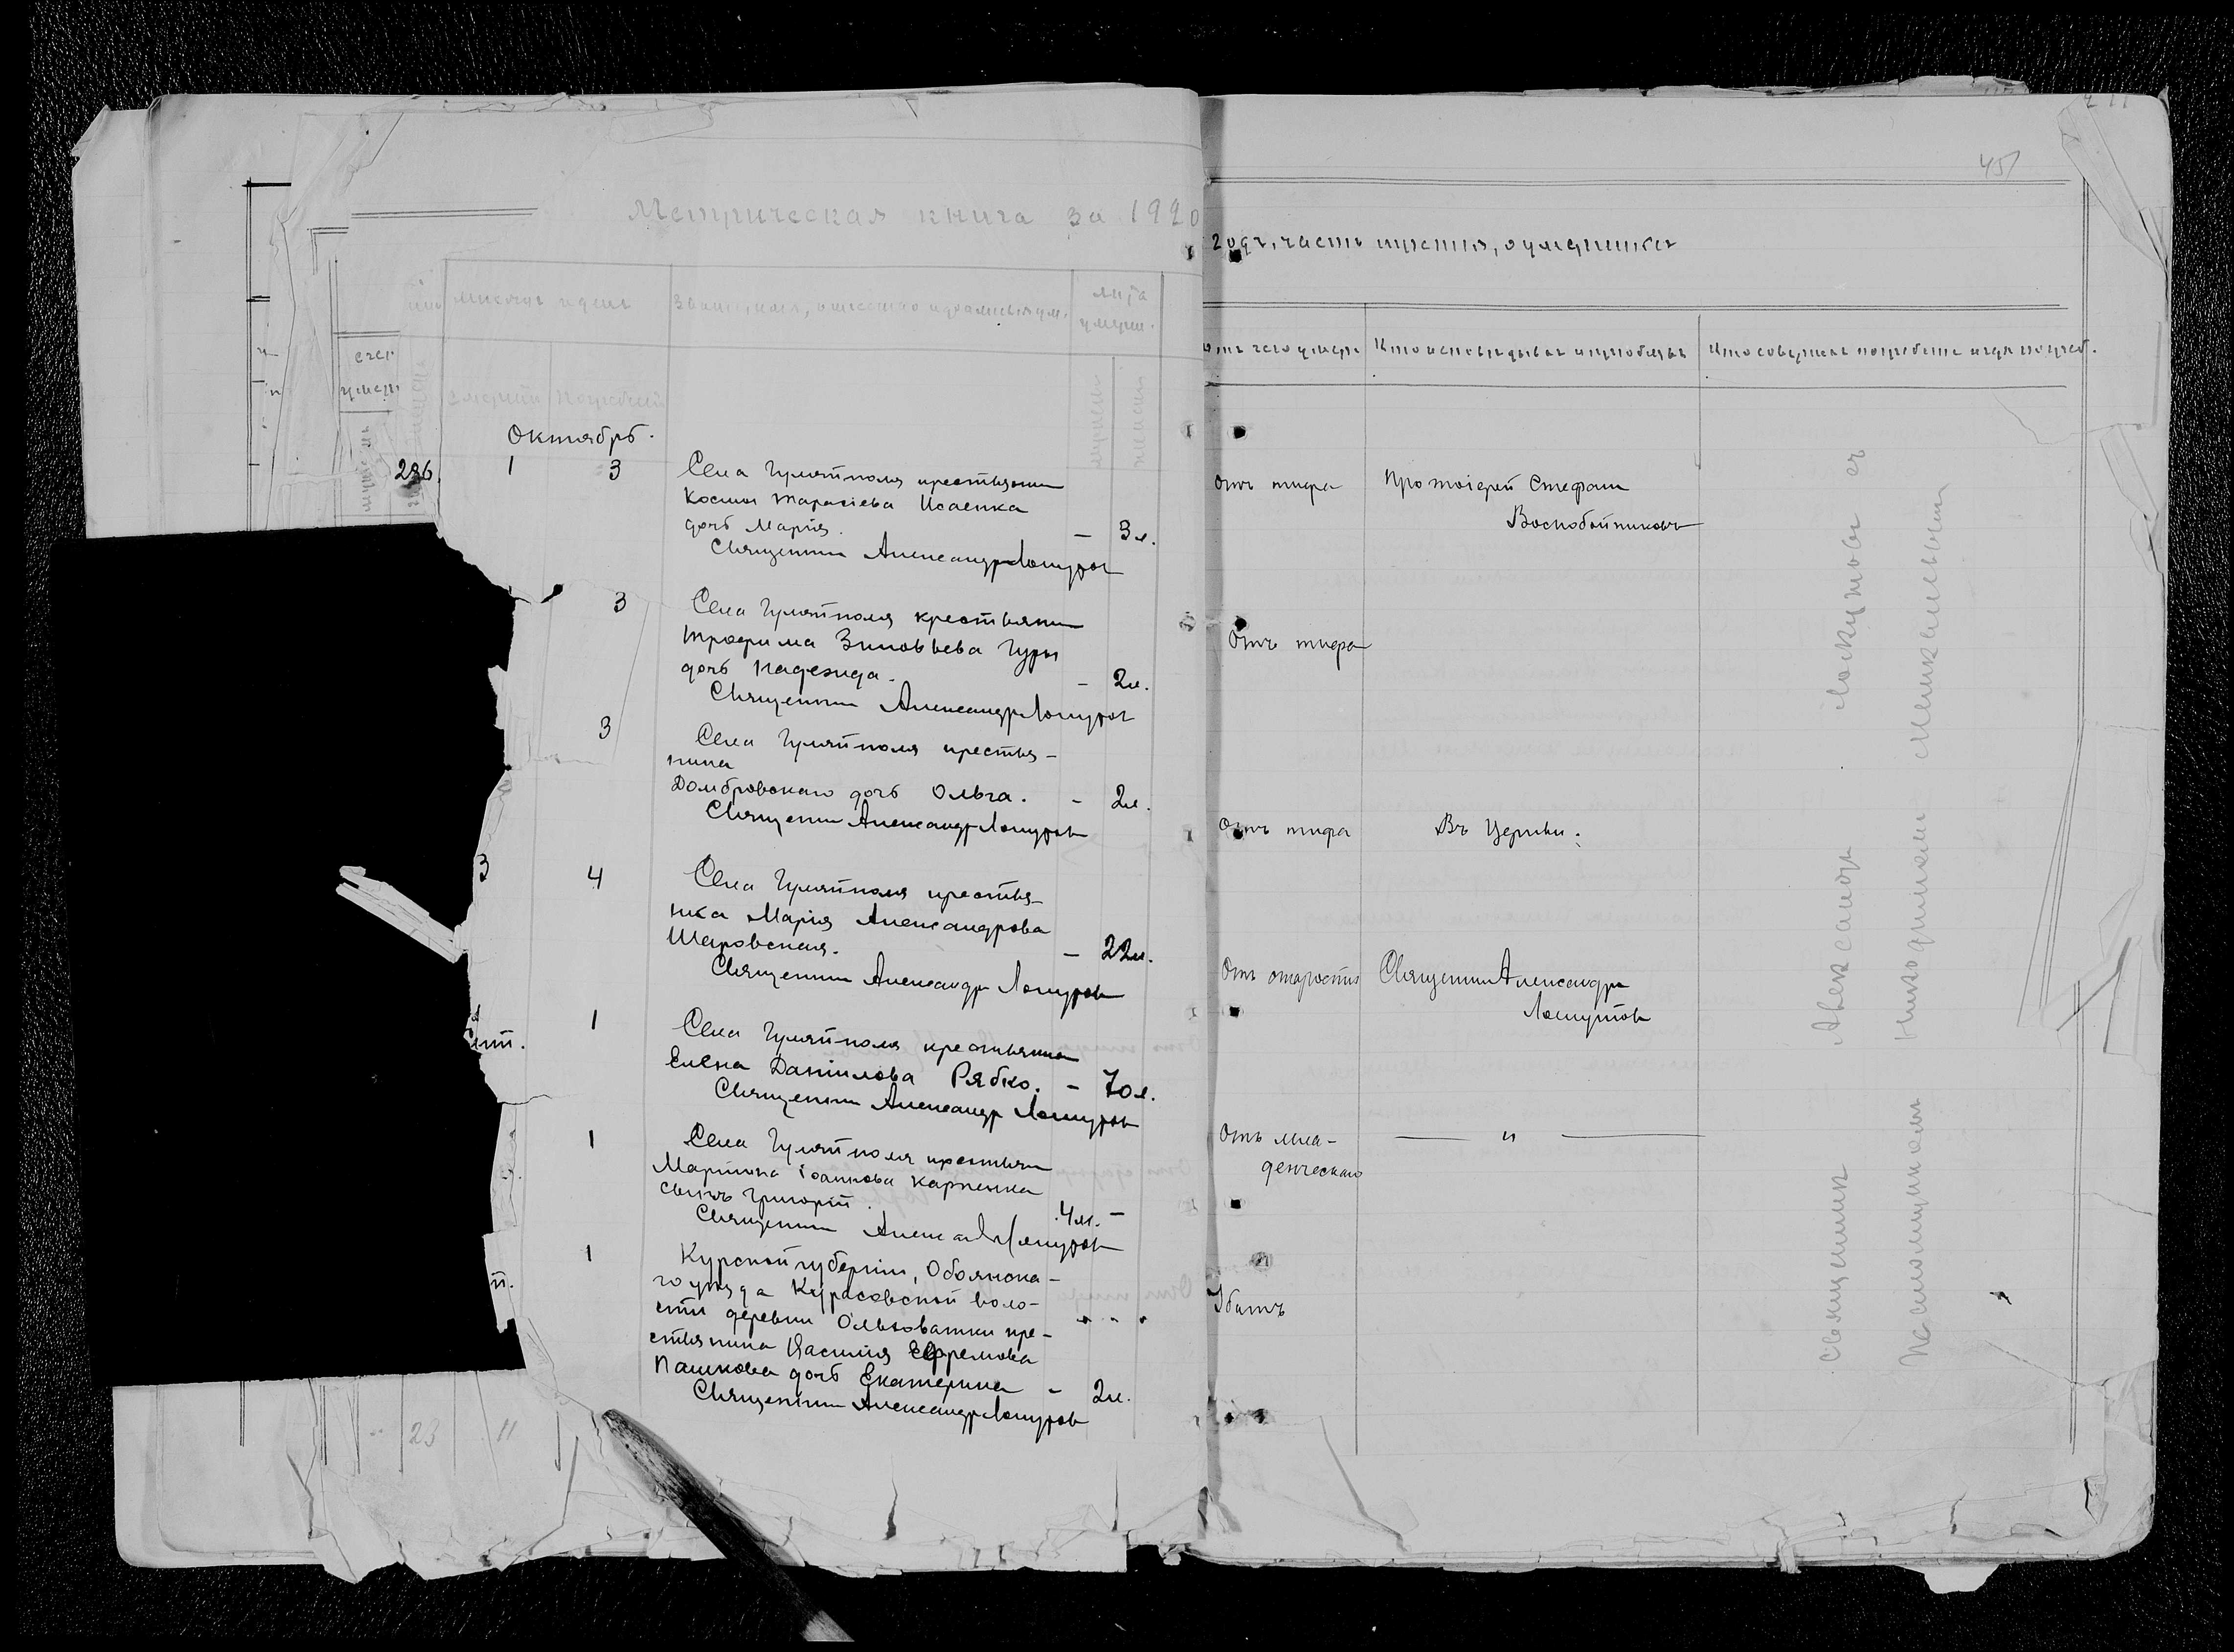 45
Метрическая книга за 1920
годъ, часть третья, о умершихъ
счет
умер
месяцъ и день
Званіе, имя, отчество и фамилія ум.
лета
умерш.
отъ чего умеръ
Кто исповедывалъ и пріобщалъ
Кто совершалъ погребеніе и где погреб.
Смерти
Погребенія
мужеска
женска
Октябрь.
286.
1
3
Села Гуляйполя крестьянина
Космы Тарасіева Исаенка
дочь Марія.
– 3 л.
Священникъ Александръ Лоскутовъ
Отъ тифа
Протоіерей Стефанъ
Воскобойниковъ
3
Села Гуляйполя крестьянина
Трофима Зиновьева Гуры
дочь Надежда.
– 2 л.
Священникъ Александръ Лоскутовъ
Отъ тифа
3
Села Гуляйполя крестья-
нина
Домбровскаго дочь Ольга.
– 2 л.
Священникъ Александръ Лоскутовъ
Отъ тифа
Въ Церкви.
3
4
Села Гуляйполя крестья-
нка Марія Александрова
Шаровская.
– 22 л.
Священникъ Александръ Лоскутовъ
Отъ старости
Священникъ Александръ
Лоскутовъ
Сент.
1
Села Гуляйполя крестьянка
Елена Даніилова Рябко. – 70 л.
Священникъ Александръ Лоскутовъ
1
Села Гуляйполя крестьян
Мартина Іоаннова Карпенка
сынъ Григорій.
4 м. –
Священникъ Александръ Лоскутовъ
Отъ мла-
денческаго
— " —
1
Курской губерніи, Обоянска-
го уезда Курасовской воло-
сти деревни Ольховатки кре-
стьянина Василія Ефремова
Пашкова дочь Екатерина
– 2 л.
Священникъ Александръ Лоскутовъ
Убитъ
23
11
Священник Александр Лоскутовъ съ
псаломщикомъ Никодимомъ